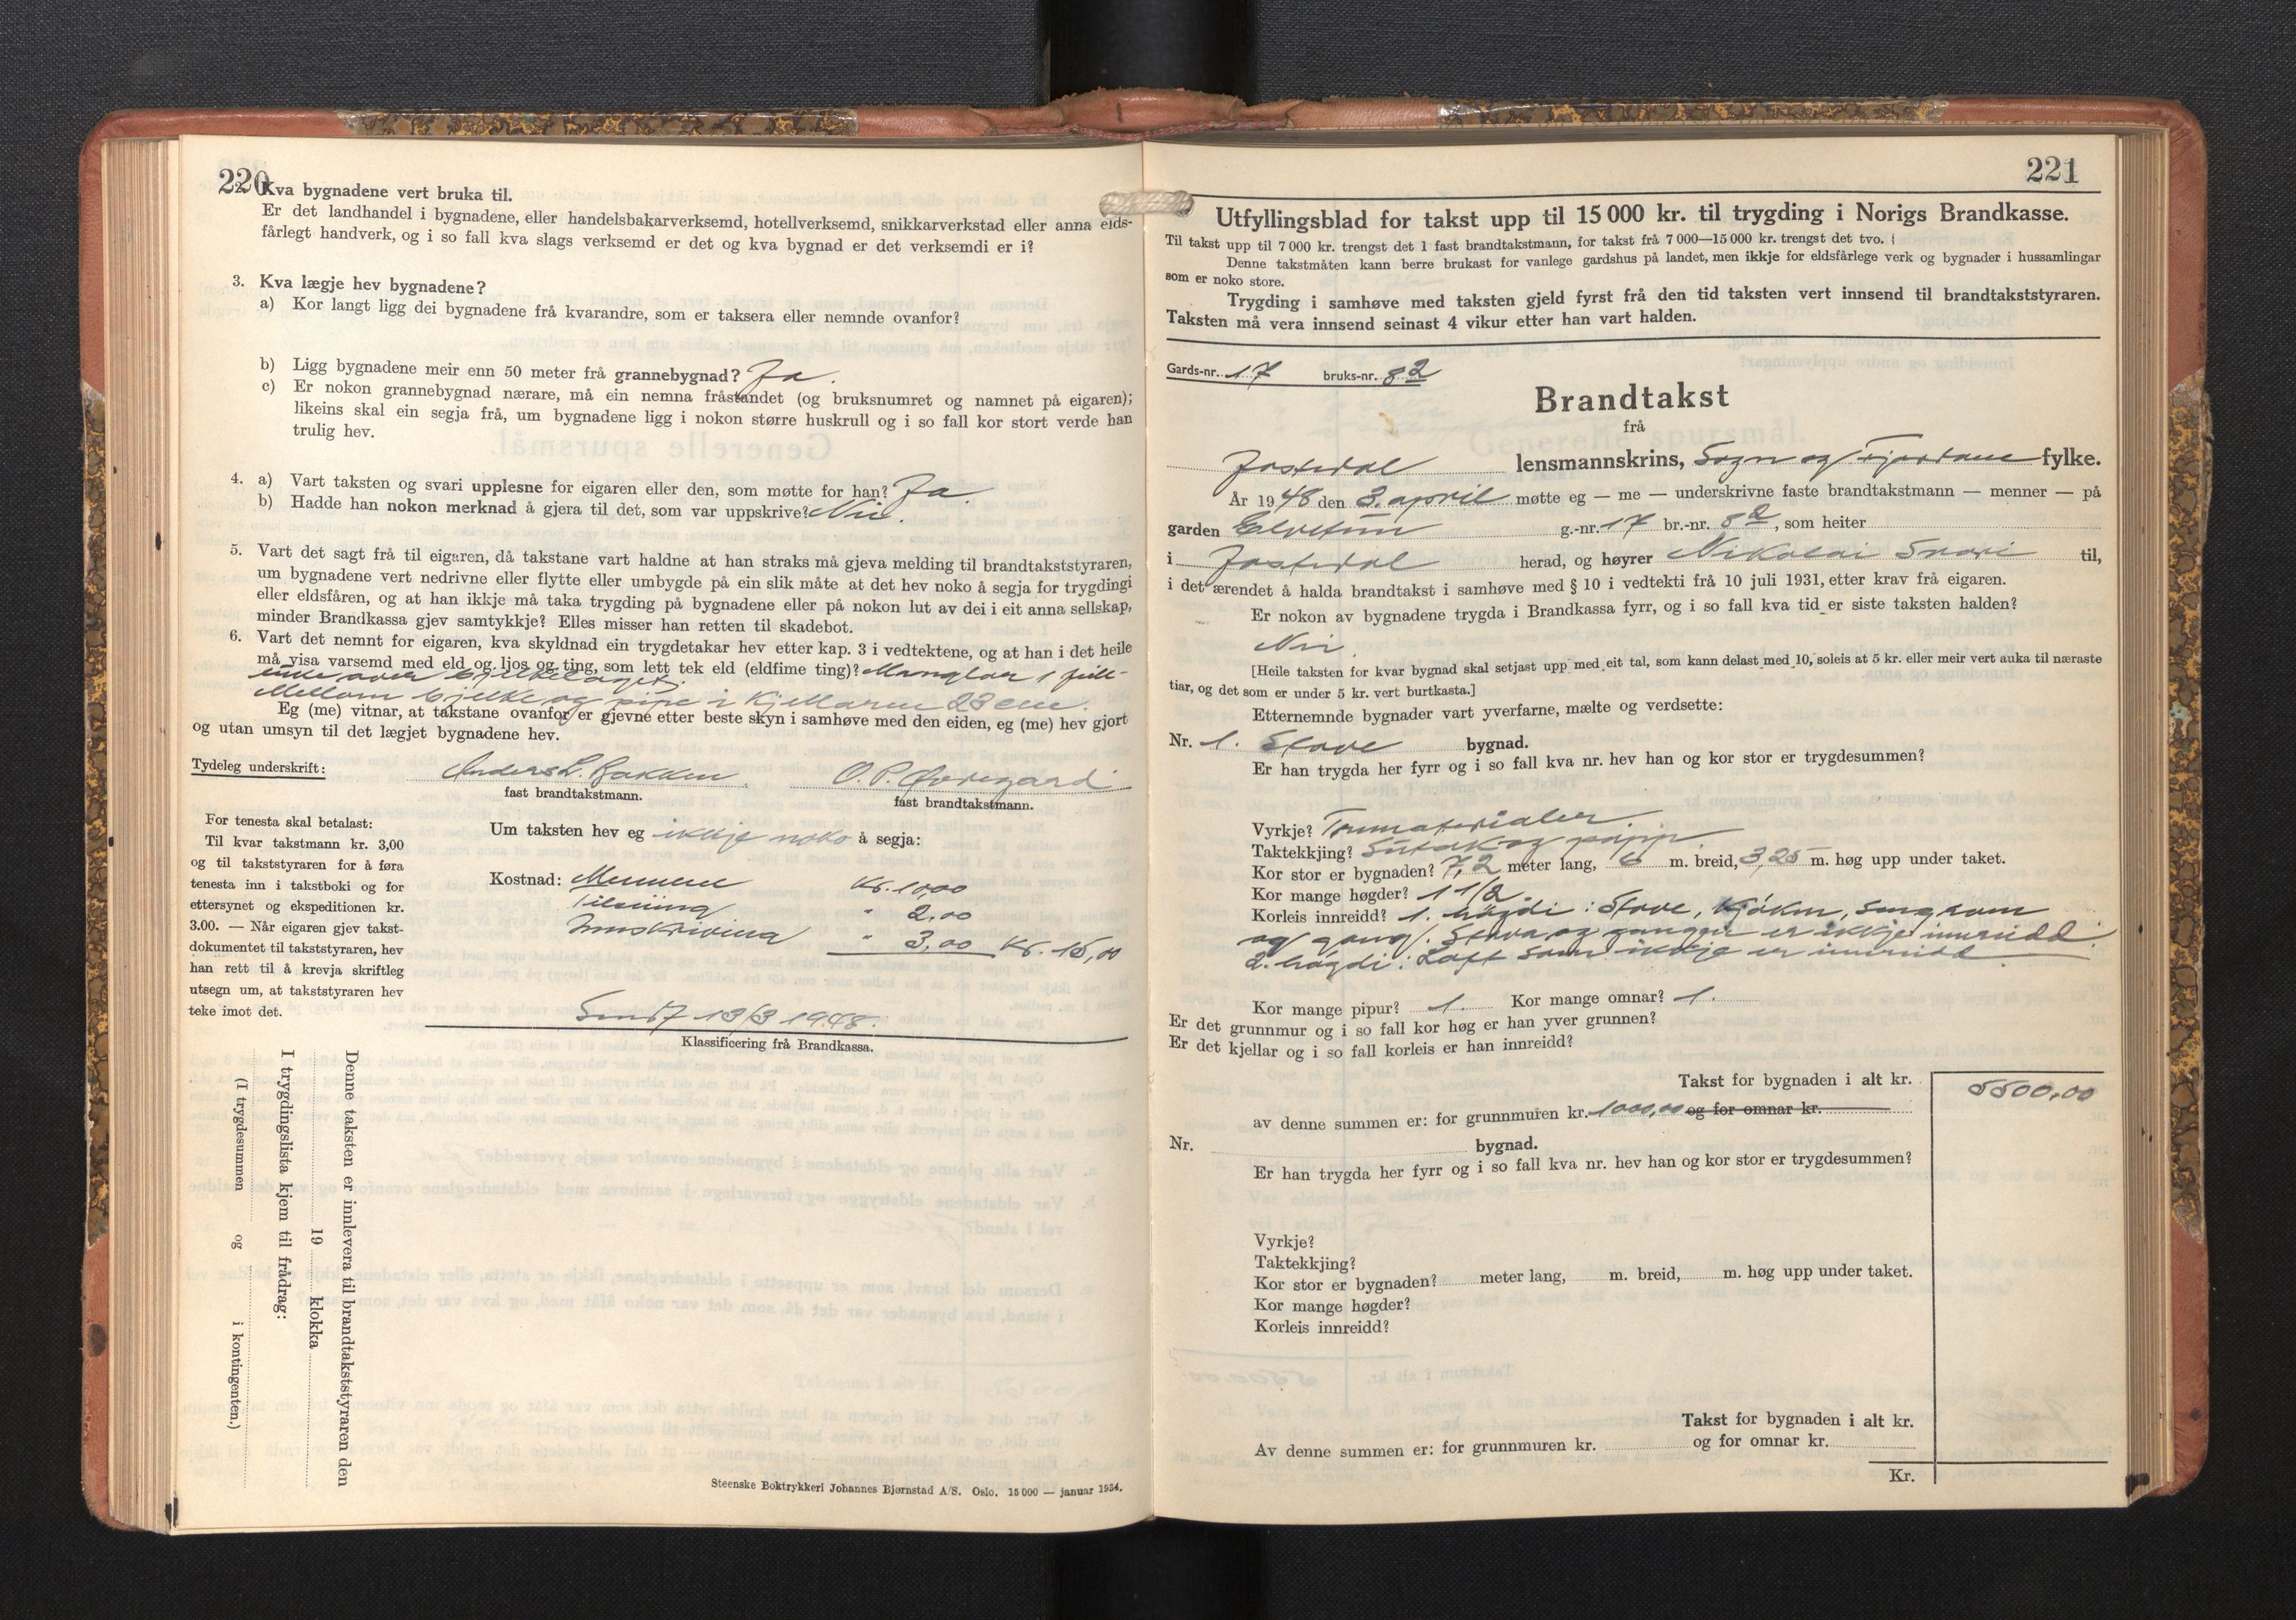 220
2. Kva bygnadene vert bruka til.
Er det landhandel i bygnadene, eller handelsbakarverksemd, hotellverksemd, snikkarverkstad eller anna elds-
fårlegt handverk, og i so fall kva slags verksemd er det og kva bygnad er det verksemdi er i?
3. Kva lægje hev bygnadene?
a) Kor langt ligg dei bygnadene frå kvarandre, som er taksera eller nemnde ovanfor?
b) Ligg bygnadene meir enn 50 meter frå grannebygnad? Ja.
c) Er nokon grannebygnad nærare, må ein nemna fråstandet (og bruksnumret og namnet på eigaren);
likeins skal ein segja frå, um bygnadene ligg i nokon større huskrull og i so fall kor stort verde han
trulig hev.
4. a) Vart taksten og svari upplesne for eigaren eller den, som møtte for han? Ja.
b) Hadde han nokon merknad å gjera til det, som var uppskrive? Nei.
5. Vart det sagt frå til eigaren, då takstane vart haldne at han straks må gjeva melding til brandtakststyraren,
um bygnadene vert nedrivne eller flytte eller umbygde på ein slik måte at det hev noko å segja for trygdingi
eller eldsfåren, og at han ikkje må taka trygding på bygnadene eller på nokon lut av dei i eit anna sellskap,
minder Brandkassa gjev samtykkje? Elles misser han retten til skadebot.
6. Vart det nemnt for eigaren, kva skyldnad ein trygdetakar hev etter kap. 3 i vedtektene, og at han i det heile
må visa varsemd med eld og ljos og ting, som lett tek eld (eldfime ting)? Manglar 1 feie-
luke over bjelkelaget.
Mellom bjelke og pipe i kjellaren 23 cm.
Eg (me) vitnar, at takstane ovanfor er gjevne etter beste skyn i samhøve med den eiden, eg (me) hev gjort
og utan umsyn til det lægjet bygnadene hev.
Tydeleg underskrift: Anders L. Bakken O. P. Øvregard
fast brandtakstmann. fast brandtakstmann.
For tenesta skal betalast:
Til kvar takstmann kr. 3,00
og til takststyraren for å føra
tenesta inn i takstboki og for
ettersynet og ekspeditionen kr.
3.00. — Når eigaren gjev takst-
dokumentet til takststyraren, hev
han rett til å krevja skriftleg
utsegn um, at takststyraren hev
teke imot det.
Um taksten hev eg ikkje noko å segja:
Kostnad: Mennene Kr. 10,00
" 2,00
Innskriving " 3,00 Kr. 15,00
Sendt 13/3 1948.
Klassificering frå Brandkassa.
Denne taksten er innlevera til brandtakststyraren den
19 klokka
I trygdingslista kjem til frådrag:
(I trygdesummen og i kontingenten.)
Steenske Boktrykkeri Johannes Bjørnstad A/S. Oslo. 15 000 — januar 1934.
221
Utfyllingsblad for takst upp til 15 000 kr. til trygding i Norigs Brandkasse.
Til takst upp til 7 000 kr. trengst det 1 fast brandtakstmann, for takst frå 7 000—15 000 kr. trengst det tvo.
Denne takstmåten kann berre brukast for vanlege gardshus på landet, men ikkje for eldsfårlege verk og bygnader i hussamlingar
som er noko store.
Trygding i samhøve med taksten gjeld fyrst frå den tid taksten vert innsend til brandtakststyraren.
Taksten må vera innsend seinast 4 vikur etter han vart halden.
Gards-nr. 17 bruks-nr. 82
Brandtakst
frå
Jostedal lensmannskrins, Sogn og Fjordane fylke.
År 1948 den 3. april møtte eg — me — underskrivne faste brandtakstmann — menner — på
garden Elvetun g.-nr. 17 br.-nr. 82, som heiter
i Jostedal herad, og høyrer Nikolai Snøri til,
i det ærendet å halda brandtakst i samhøve med § 10 i vedtekti frå 10 juli 1931, etter krav frå eigaren.
Er nokon av bygnadene trygda i Brandkassa fyrr, og i so fall kva tid er siste taksten halden?
Nei.
[Heile taksten for kvar bygnad skal setjast upp med eit tal, som kann delast med 10, soleis at 5 kr. eller meir vert auka til næraste
tiar, og det som er under 5 kr. vert burtkasta.]
Etternemnde bygnader vart yverfarne, mælte og verdsette:
Nr. 1. Stove bygnad.
Er han trygda her fyrr og i so fall kva nr. hev han og kor stor er trygdesummen?
Vyrkje? Trematerialer.
Taktekkjing? Sutak og papp.
Kor stor er bygnaden? 7,2 meter lang, 6 m. breid, 3,25 m. høg upp under taket.
Kor mange høgder? 1 1/2.
Korleis innreidd? 1. høgdi: Stove, kjøken, sengrom
og gang. Stova og gangen er ikkje innreidd.
2. høgdi: Loft som ikkje er innreidd.
Kor mange pipur? 1. Kor mange omnar? 1.
Er det grunnmur og i so fall kor høg er han yver grunnen?
Er det kjellar og i so fall korleis er han innreidd?
Takst for bygnaden i alt kr. 5500,00
av denne summen er: for grunnmuren kr. 1000,00 og for omnar kr.
Nr. bygnad.
Er han trygda her fyrr og i so fall kva nr. hev han og kor stor er trygdesummen?
Vyrkje?
Taktekkjing?
Kor stor er bygnaden? meter lang, m. breid, m. høg upp under taket.
Kor mange høgder?
Korleis innreidd?
Takst for bygnaden i alt kr.
Av denne summen er: for grunnmuren kr. og for omnar kr.
Kr.